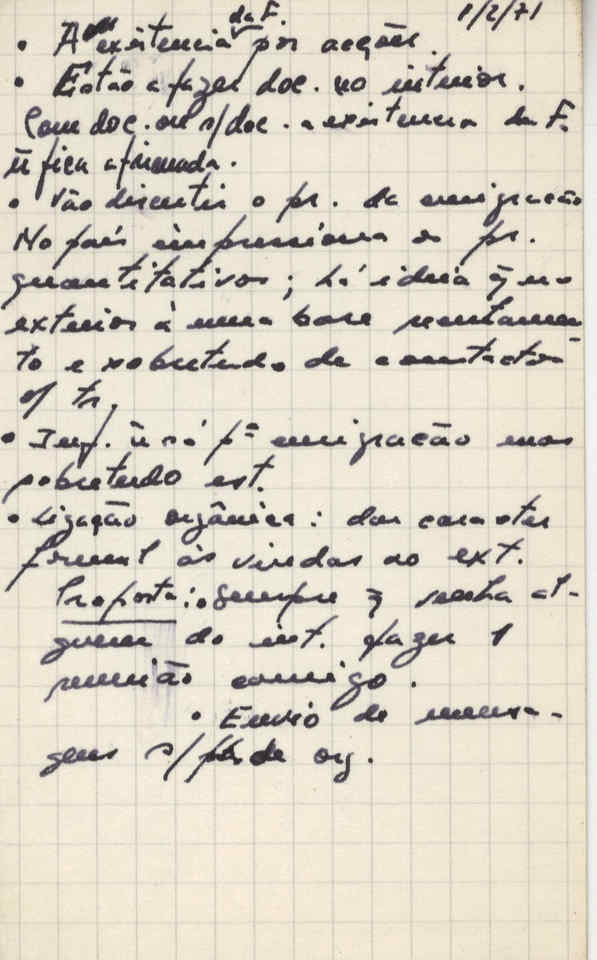 1/2/71
• A existencia da F. por acções.
• Estão a fazer doc. no interior.
Com doc. ou s/ doc. a existencia da F.
ñ fica afirmada.
• Vão discutir o pr. da emigração
No país impressiona os pr.
quantitativos; há ideia q̃ no
exterior há uma base
to e sobretudo de contactos
c/ tr.
• Inf. ñ só pª emigração mas
sobretudo est.
• Ligação orgânica: dar caracter
formal às vindas ao ext.
Proposta: • Sempre q̃ venha al-
guem do int. fazer 1
reunião comigo.
• Envio de mensa-
gens s/ de org.